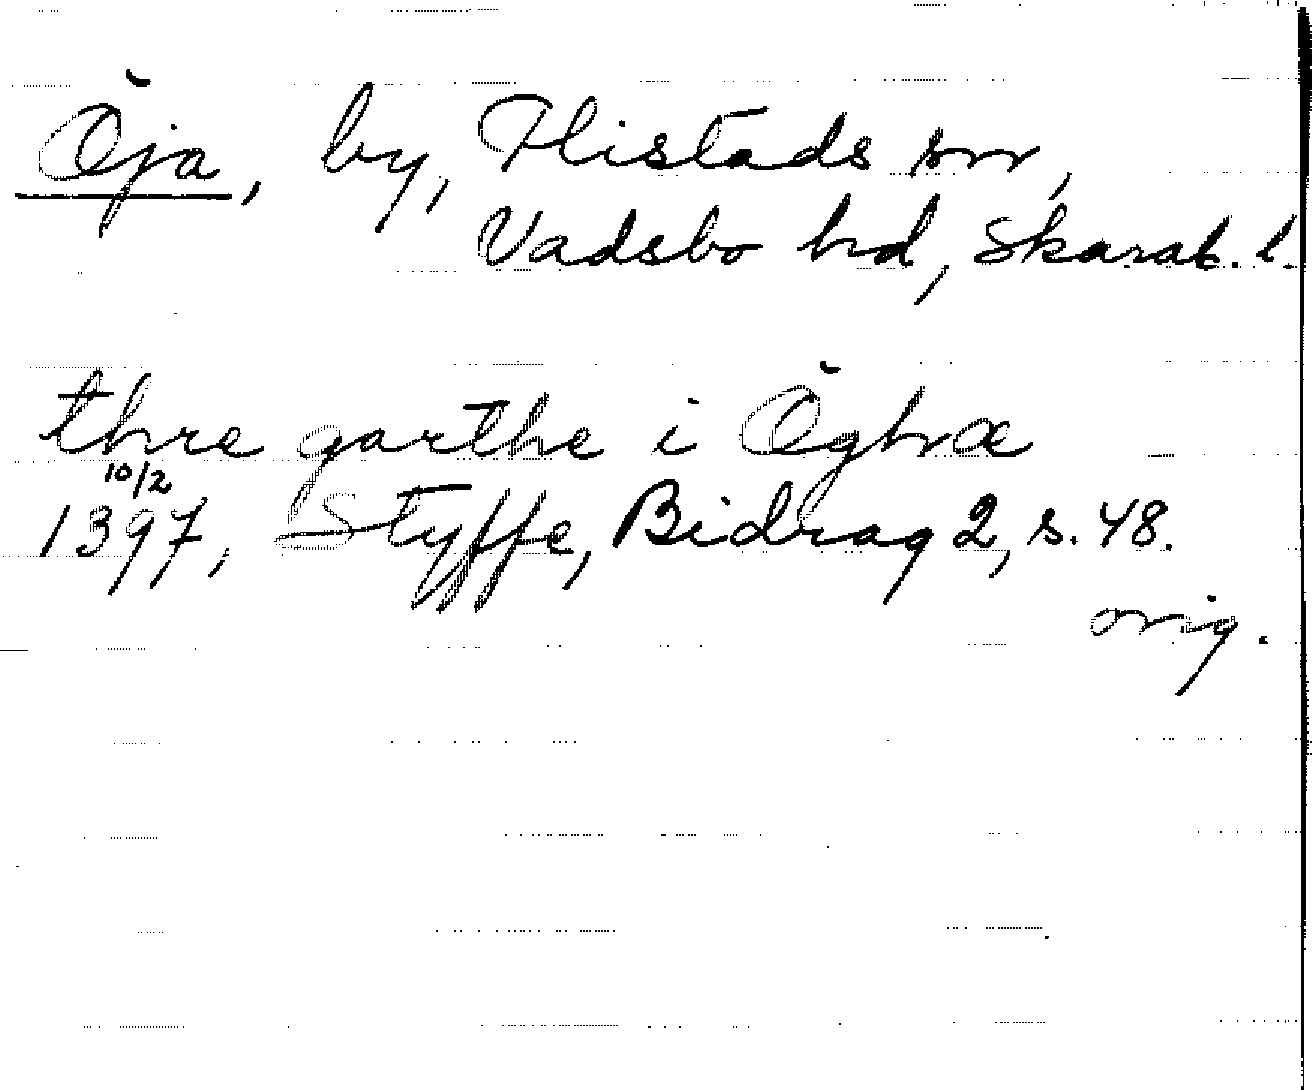 Öja, by, Flistads sn,
Vadsbo hd, Skarab. l.
thre garthe i Öghæ
10/2
1397, Styffe, Bidrag 2, s. 48.
orig.